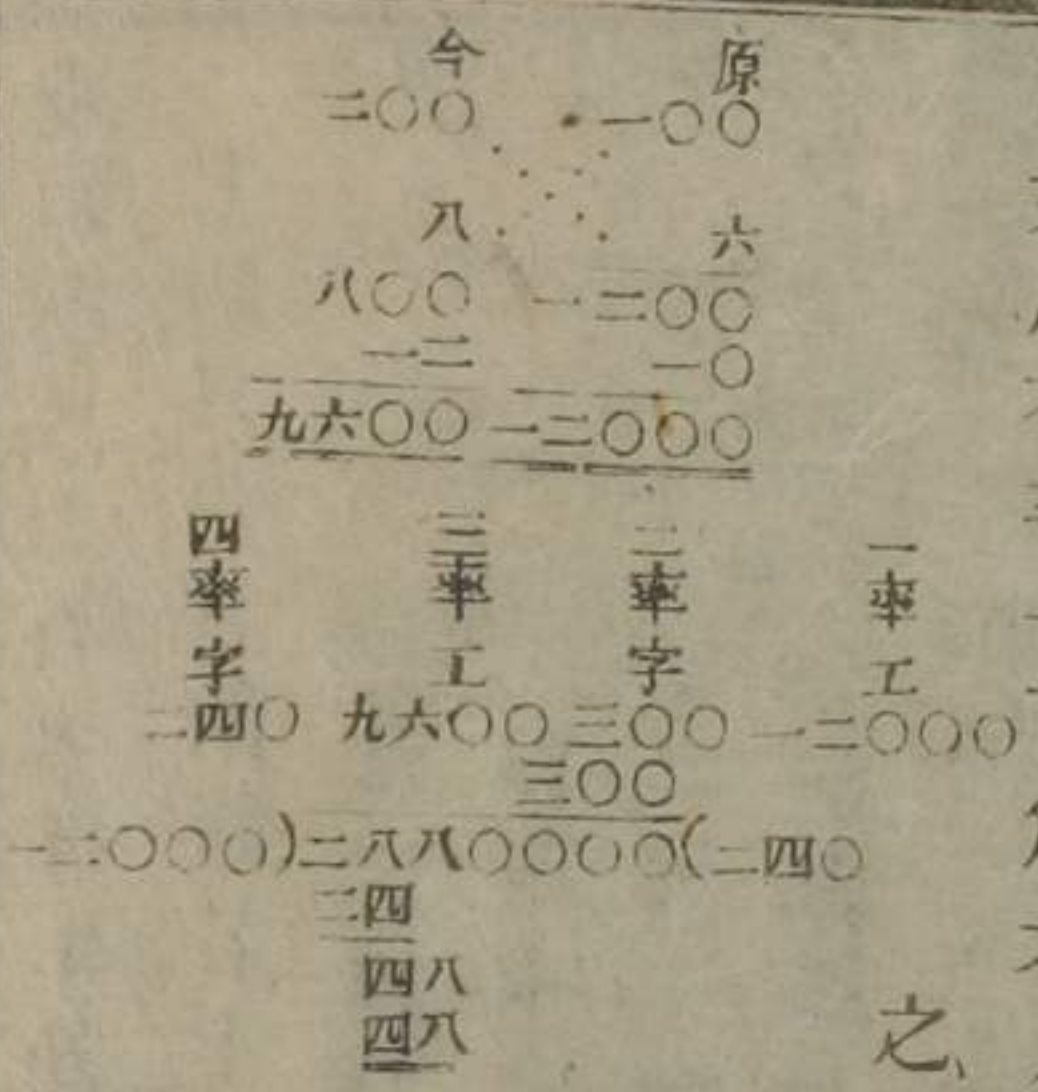 今 原
二〇〇 一〇〇
八 六
八〇〇 一二〇〇
一二 一〇
九六〇〇 一二〇〇〇
四率字 三率工 二率字 一率工
二四〇 九六〇〇 三〇〇 一二〇〇〇
三〇〇
一二〇〇〇)二八八〇〇〇〇(二四〇
二四
四八
四八
之、